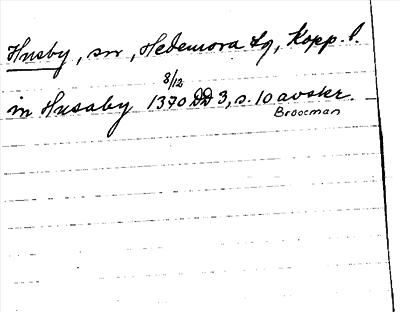 Husby, sn, Hedemora tg, Kopp. l.
8/12
in Husaby 1370 DD 3, s. 10 avskr.
Broocman